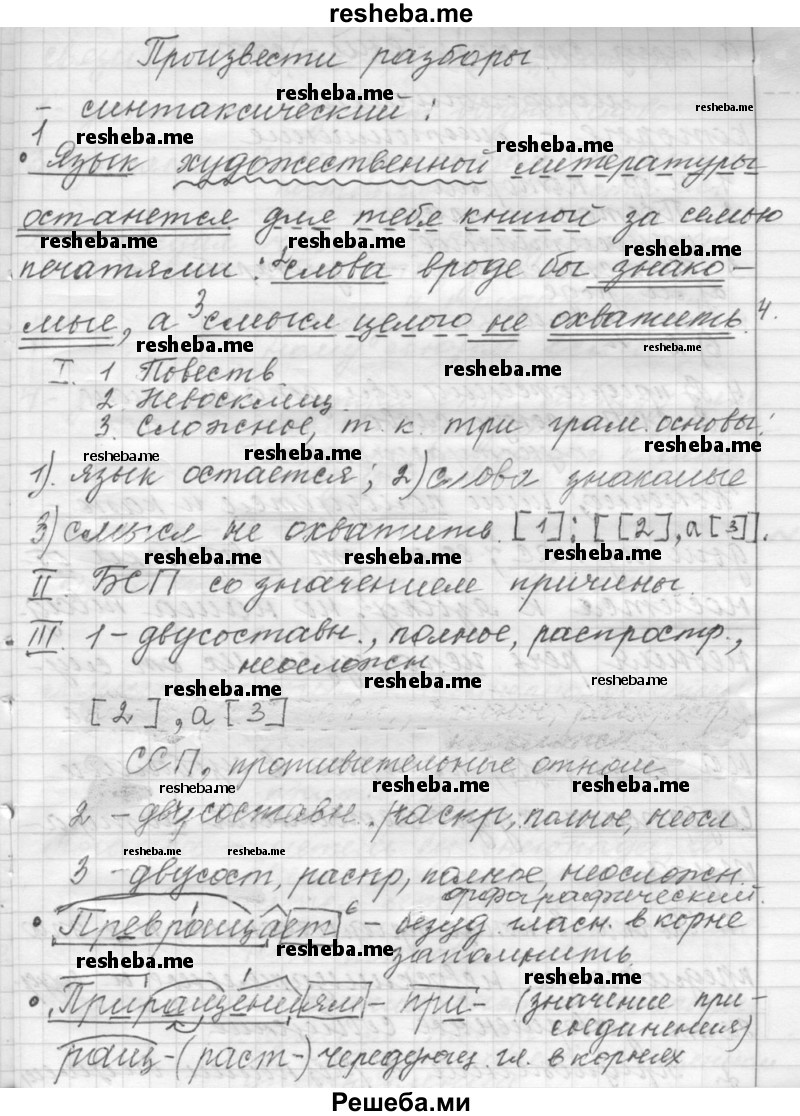 resheba.me
Произвести разборы
resheba.me
resheba.me
- синтаксический:
1 resheba.me resheba.me
• Язык художественной литературы
останется для тебя книгой за семью
resheba.me resheba.me resheba.me
печатями: 2 слова вроде бы знако-
мые, а 3 смысл целого не охватить. 4.
resheba.me resheba.me
I. 1 Повеств resheba.me
2. Невосклиц.
3. Сложное, т. к три грам. основы:
resheba.me resheba.me resheba.me
1). язык остается; 2) слова знакомые
3) смысл не охватить. [1]: [[2], а [3]].
resheba.me resheba.me resheba.me
II. БСП со значением причины.
III. 1 - двусоставн., полное, распростр.,
неосложн
resheba.me resheba.me resheba.me
[2], а [3]
ССП, противительные отнош
resheba.me resheba.me resheba.me
2 - двусоставн. раскр, полное, неосл.
resheba.me resheba.me
3 - двусост, распр, полное, неосложн.
орфографический.
• Превращает 6 - безуд гласн. в корне
запомнить.
resheba.me resheba.me
resheba.me
• Приращениям - при- (значение при-
соединения)
ращ - (раст-) чередующ. гл. в корнях
Решеба.ми